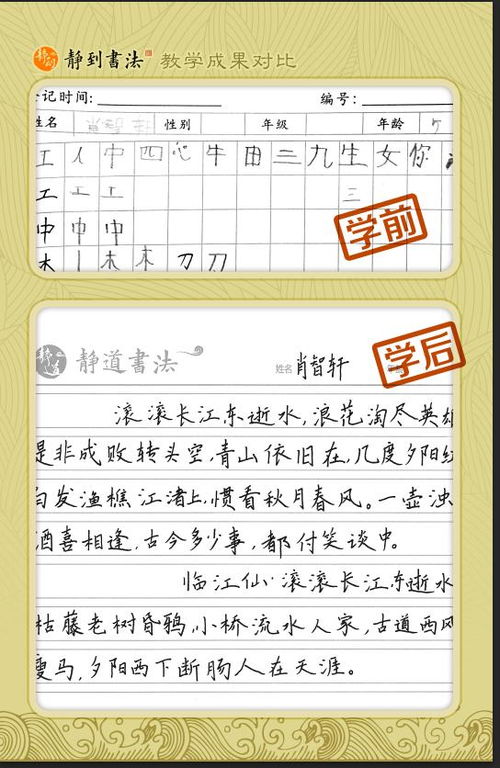 静到書法 教学成果对比
记时间: 编号:
姓名 肖智轩 性别 年级 年龄
工 人 中 四 心 牛 田 三 九 生 女 你
工 工 工 三
中 中 中
木 木 木 刀 刀
学前
学后
静道書法 姓名 肖智轩
滚滚长江东逝水,浪花淘尽英雄
是非成败转头空,青山依旧在,几度夕阳红
白发渔樵江渚上,惯看秋月春风。一壶浊
酒喜相逢,古今多少事,都付笑谈中。
临江仙·滚滚长江东逝水
枯藤老树昏鸦,小桥流水人家,古道西风
瘦马,夕阳西下断肠人在天涯。